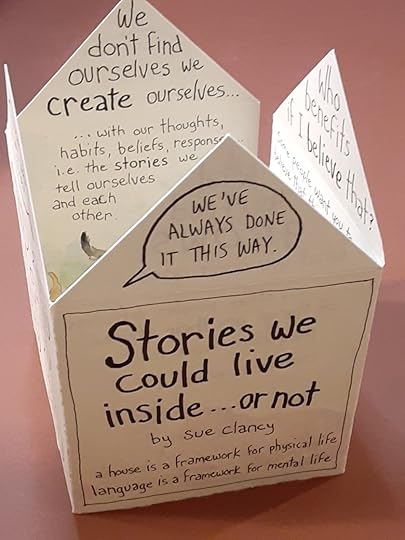 We
don't find
ourselves we
create ourselves...
... with our thoughts,
habits, beliefs,
i.e. the stories we
tell ourselves
and each
other.
Who
benefits
if I believe that?
WE'VE
ALWAYS DONE
IT THIS WAY.
Stories we
could live
inside...or not
by Sue Clancy
a house is a framework for physical life
language is a framework for mental life